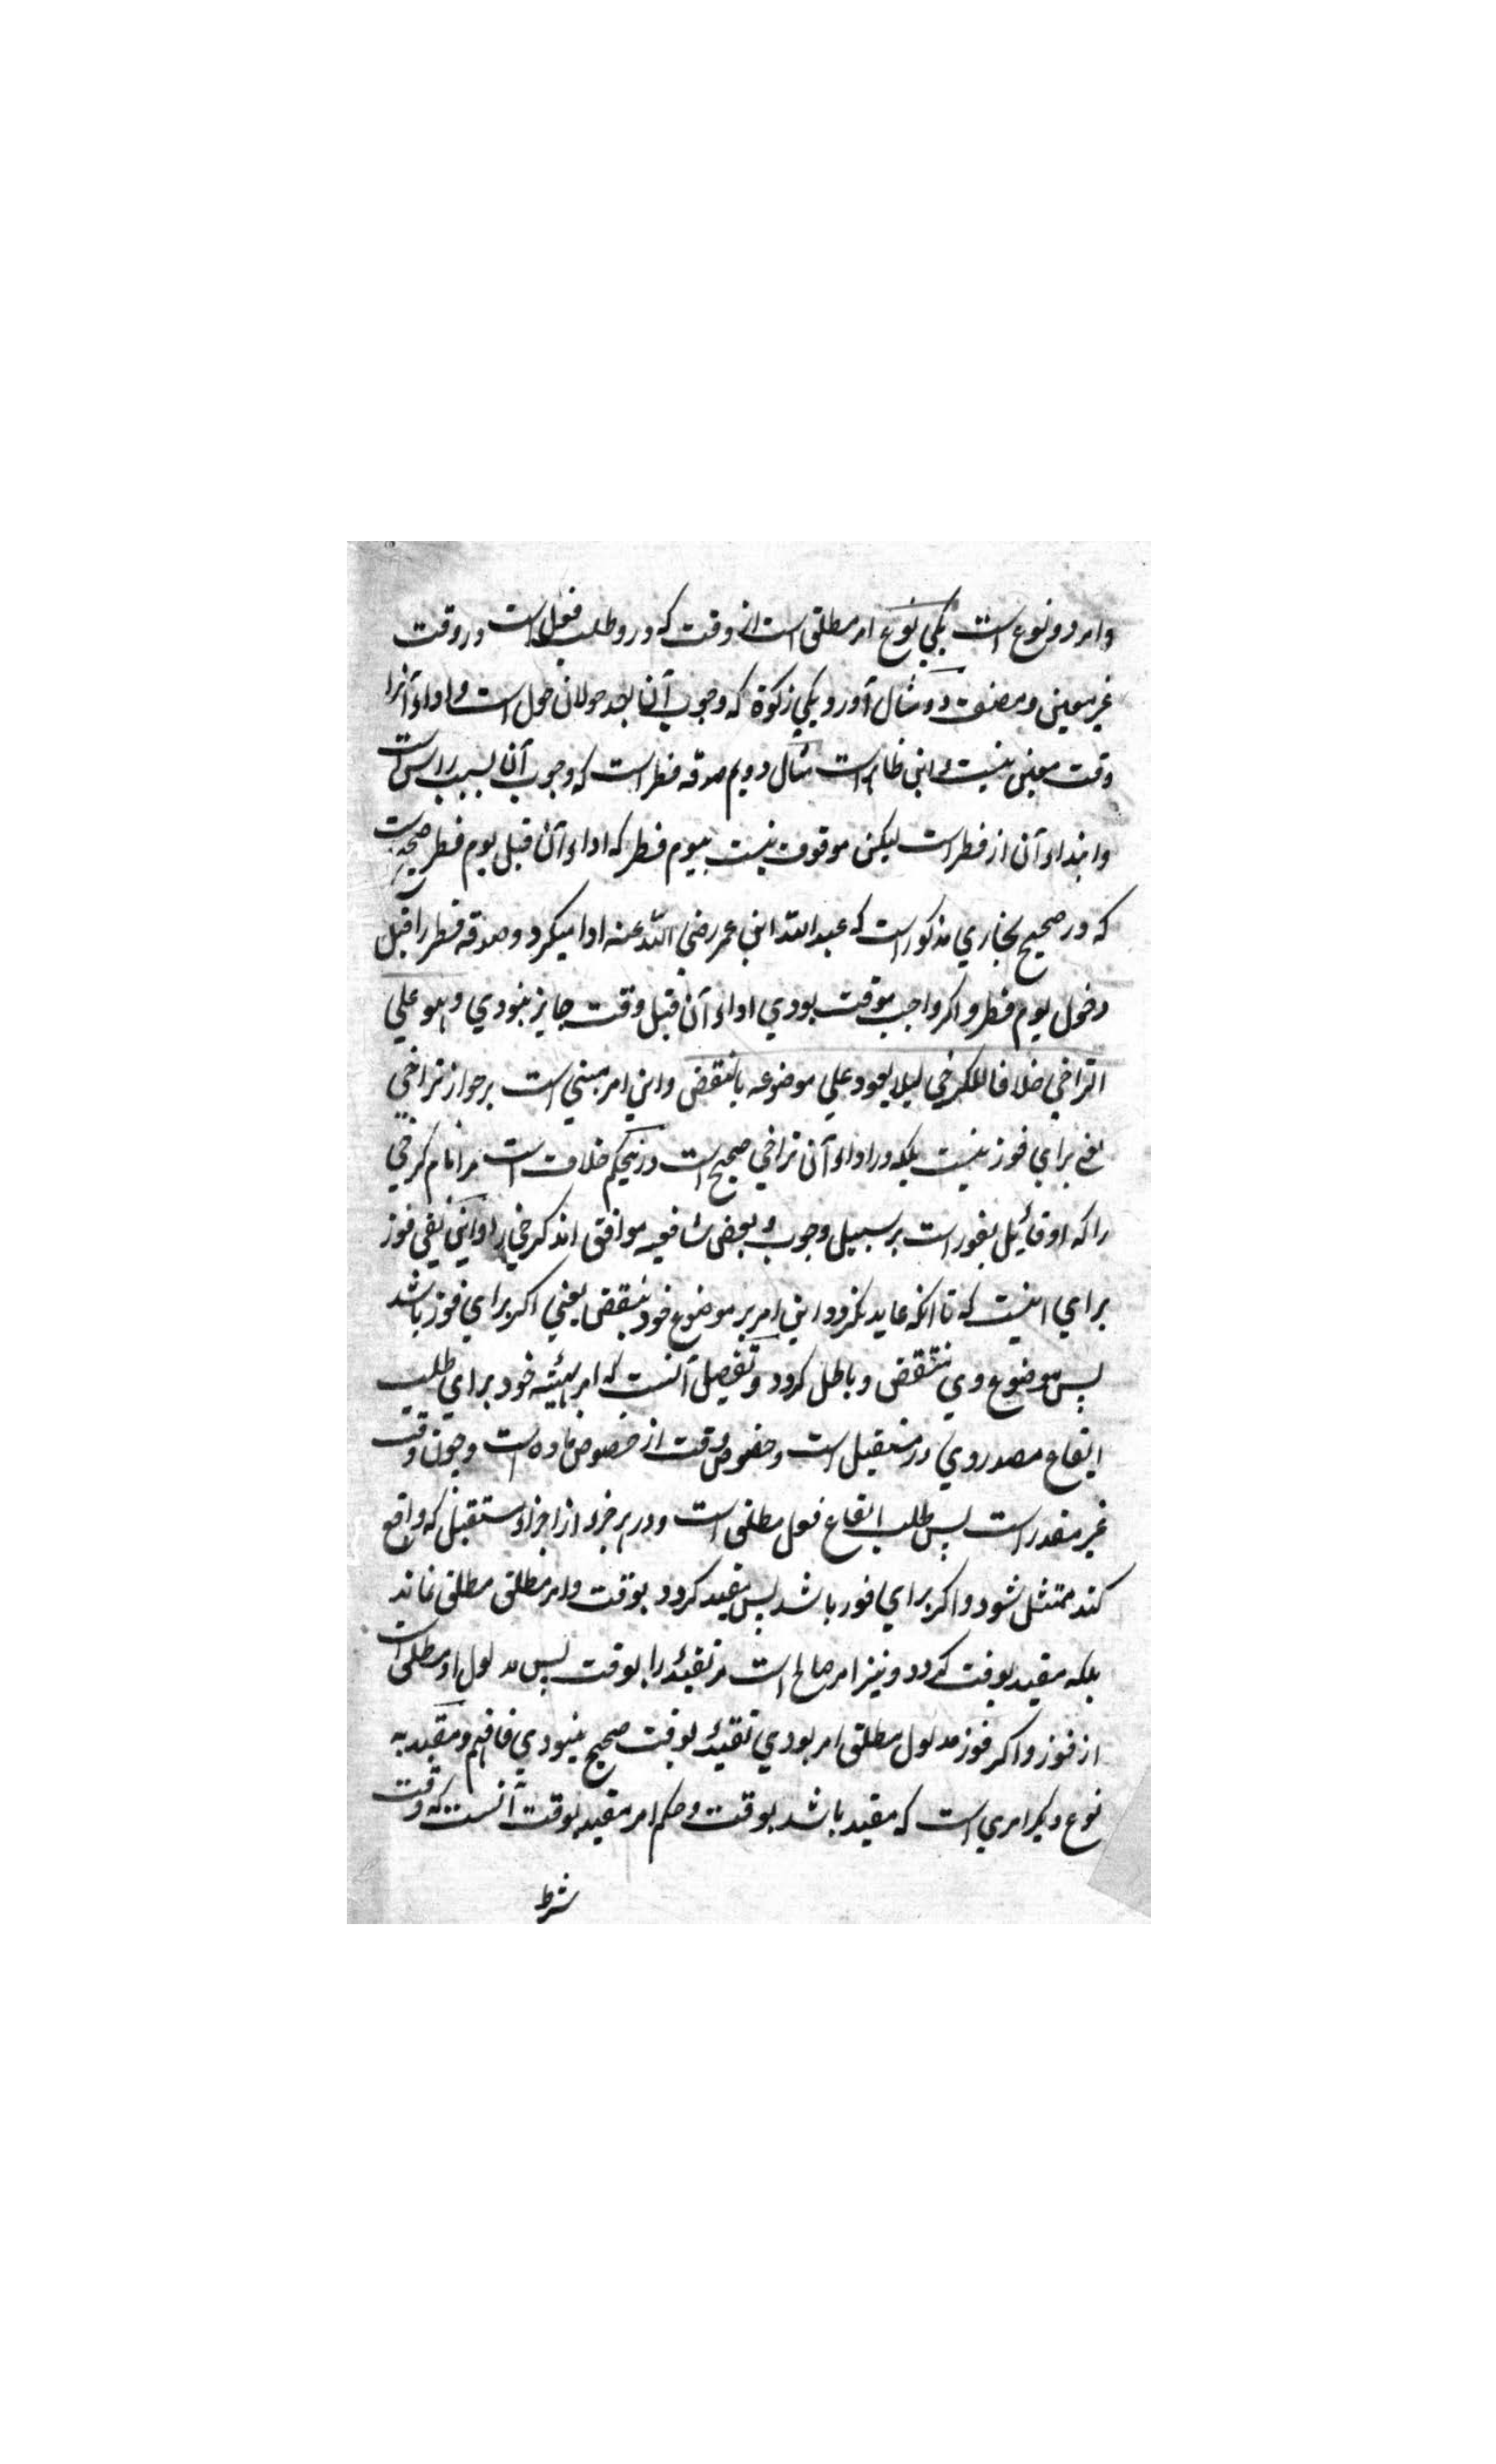 وامر دو نوع است یکي نوع امر مطلق است از وقت که درو طلب فعل است در وقت
غیر معین و مصنف دو مثال آورد یکي زکوة که وجوب آن بعد حولان حول است و اداء آنرا
وقت معین نیست و این ظاهر است مثال دویم صدقه فطر است که وجوب آن بسبب راس است
وابتداء آن از فطر است لیکن موقوف نیست بیوم فطر که اداء آن قبل یوم فطر صحیح است
که در صحیح بخاري مذکور است که عبد الله ابن عمر رضي الله عنه ادا میکرد و صدقه فطر را قبل
دخول یوم فطر و اکر واجب موقت بودي اداء آن قبل وقت جایز نبودي وهو علي
التراخي خلافا للکرخي لیلا یعود علي موضوعه بالنقض واین امر مبني است بر جواز تراخي
یعني براي فوز نیست بلکه در اداء آن تراخي صحیح است و درینحکم خلاف است مر امام کرخي
را که او قائل بفور است بر سبیل وجوب و بعض شافعیه موافق اند کرخي را و این نفي فوز
براي اینست که تا انکه عاید نکردد این امر بر موضوع خود بنقض یعني اکر براي فوز باشد
پس موضوع وي منتقض و باطل کردد و تفصیل آنست که امر بهیئه خود براي طلب
ایقاع مصدر وي در مستقبل است و خصوص وقت از خصوص ماده است و چون وقت
غیر مقدر است پس طلب ایقاع فعل مطلق است و در هر جزء از اجزاء مستقبل که واقع
کند ممتثل شود و اکر براي فور باشد پس مقید کردد بوقت و امر مطلق مطلق نماند
بلکه مقید بوقت کردد و نیز امر صالح است مر تقیید را بوقت پس مدلول او مطلق است
از فوز و اکر فوز مدلول مطلق امر بودي تقیید بوقت صحیح نبودي فافهم و مقید به
نوع دیکر امري است که مقید باشد بوقت و حکم امر مقید بوقت آنست که وقت
شرط